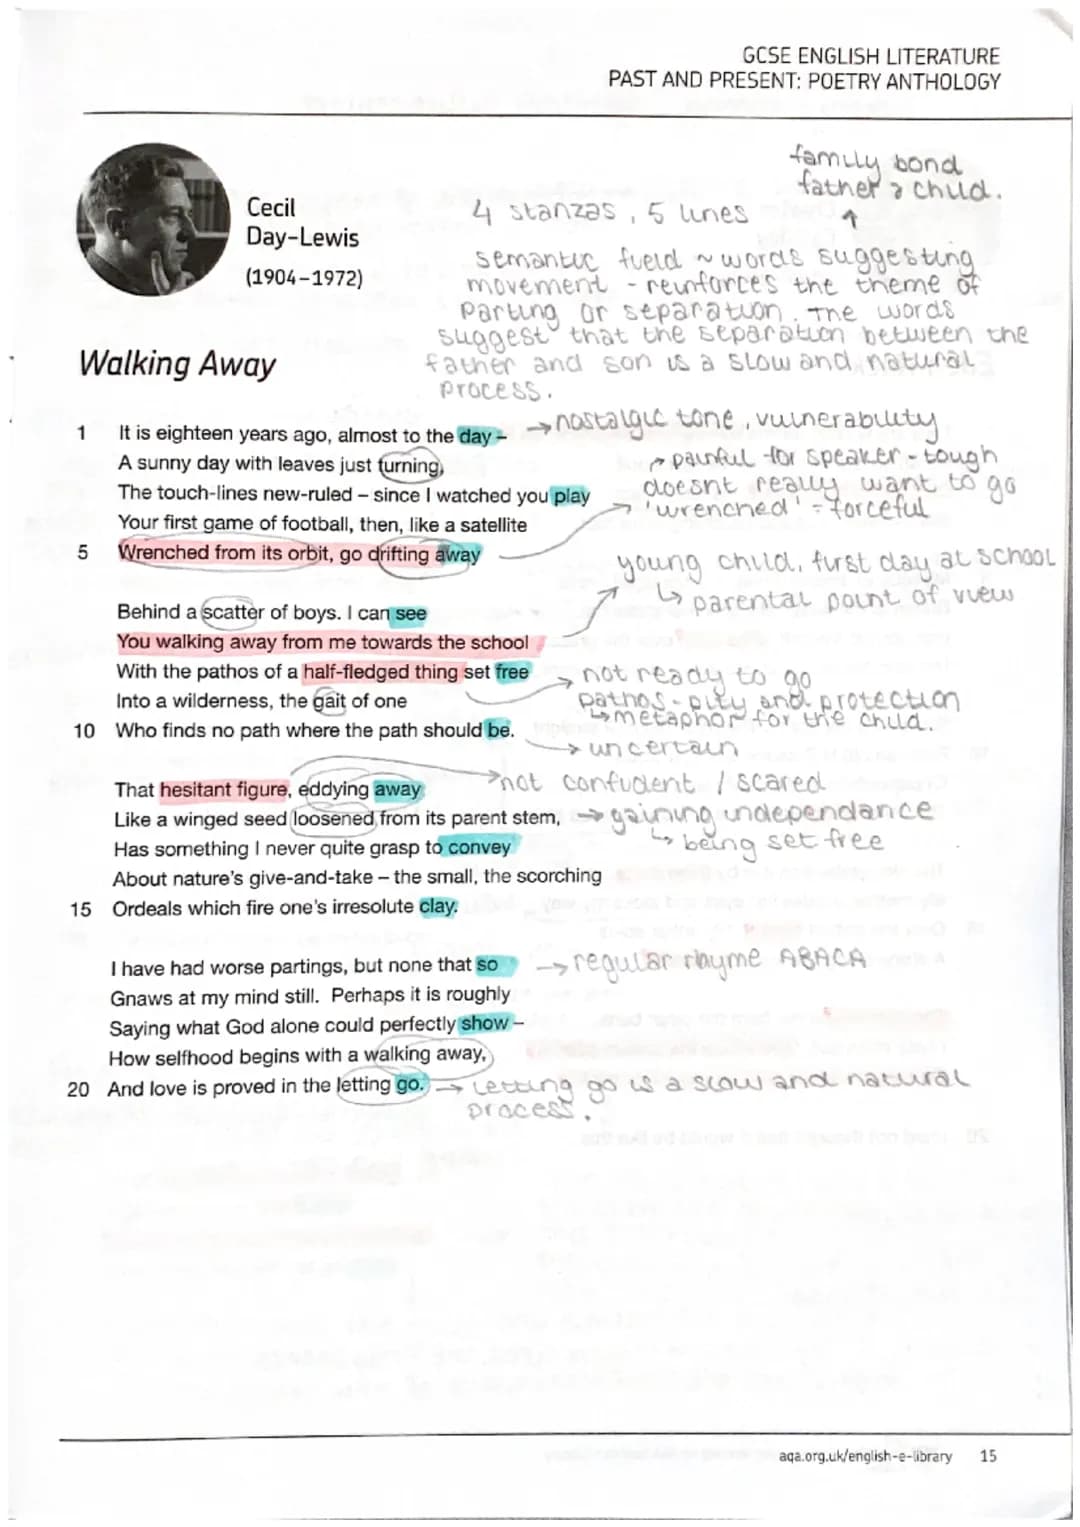 GCSE ENGLISH LITERATURE
PAST AND PRESENT: POETRY ANTHOLOGY
family bond
father & child.
Cecil
Day-Lewis
(1904-1972)
4 stanzas, 5 lines
semantic field ~ words suggesting
movement - reinforces the theme of
parting or separation. The words
suggest that the separation between the
father and son is a slow and natural
process.
Walking Away
1 It is eighteen years ago, almost to the day –
→ nostalgic tone, vulnerability
A sunny day with leaves just turning,
→ painful for speaker - tough
The touch-lines new-ruled – since I watched you play
doesnt really want to go
Your first game of football, then, like a satellite
→ 'wrenched' = forceful
5 Wrenched from its orbit, go drifting away
young child, first day at school
↳ parental point of view
Behind a scatter of boys. I can see
You walking away from me towards the school
With the pathos of a half-fledged thing set free
→ not ready to go
Into a wilderness, the gait of one
pathos - pity and protection
↳ metaphor for the child.
10 Who finds no path where the path should be.
→ uncertain
That hesitant figure, eddying away
→ not confident / scared
Like a winged seed loosened from its parent stem,
→ gaining independance
↳ being set free
Has something I never quite grasp to convey
About nature's give-and-take – the small, the scorching
15 Ordeals which fire one's irresolute clay.
I have had worse partings, but none that so
→ regular rhyme ABACA
Gnaws at my mind still. Perhaps it is roughly
Saying what God alone could perfectly show –
How selfhood begins with a walking away,
20 And love is proved in the letting go.
→ Letting go is a slow and natural
process.
aqa.org.uk/english-e-library 15